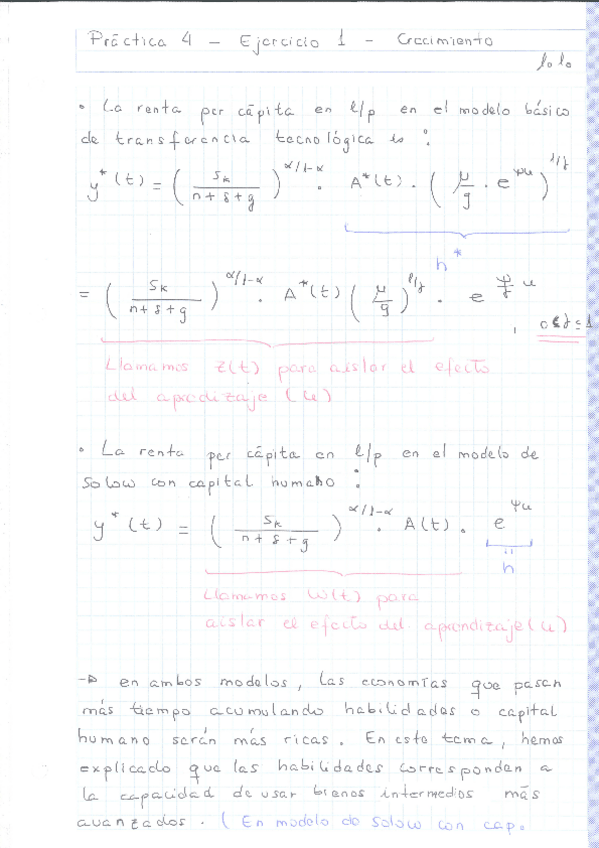 Práctica 4 - Ejercicio 1 - Crecimiento
lolo
• La renta per cápita en l/p en el modelo básico
de transferencia tecnológica es :
y*(t) = ( sₖ / n+δ+g )^α/1-α · A*(t) · ( μ/g · e^ψu )^1/γ
h*
= ( sₖ / n+δ+g )^α/1-α · A*(t) ( μ/g )^1/γ · e^ψ/γ u , 0<γ≤1
Llamamos z(t) para aislar el efecto
del apredizaje (u)
• La renta per cápita en l/p en el modelo de
Solow con capital humano :
y*(t) = ( sₖ / n+δ+g )^α/1-α · A(t) · e^ψu
h
Llamamos W(t) para
aislar el efecto del aprendizaje (u)
-▷ en ambos modelos, las economías que pasan
más tiempo acumulando habilidades o capital
humano serán más ricas. En este tema, hemos
explicado que las habilidades corresponden a
la capacidad de usar bienes intermedios más
avanzados. ( En modelo de Solow con cap.